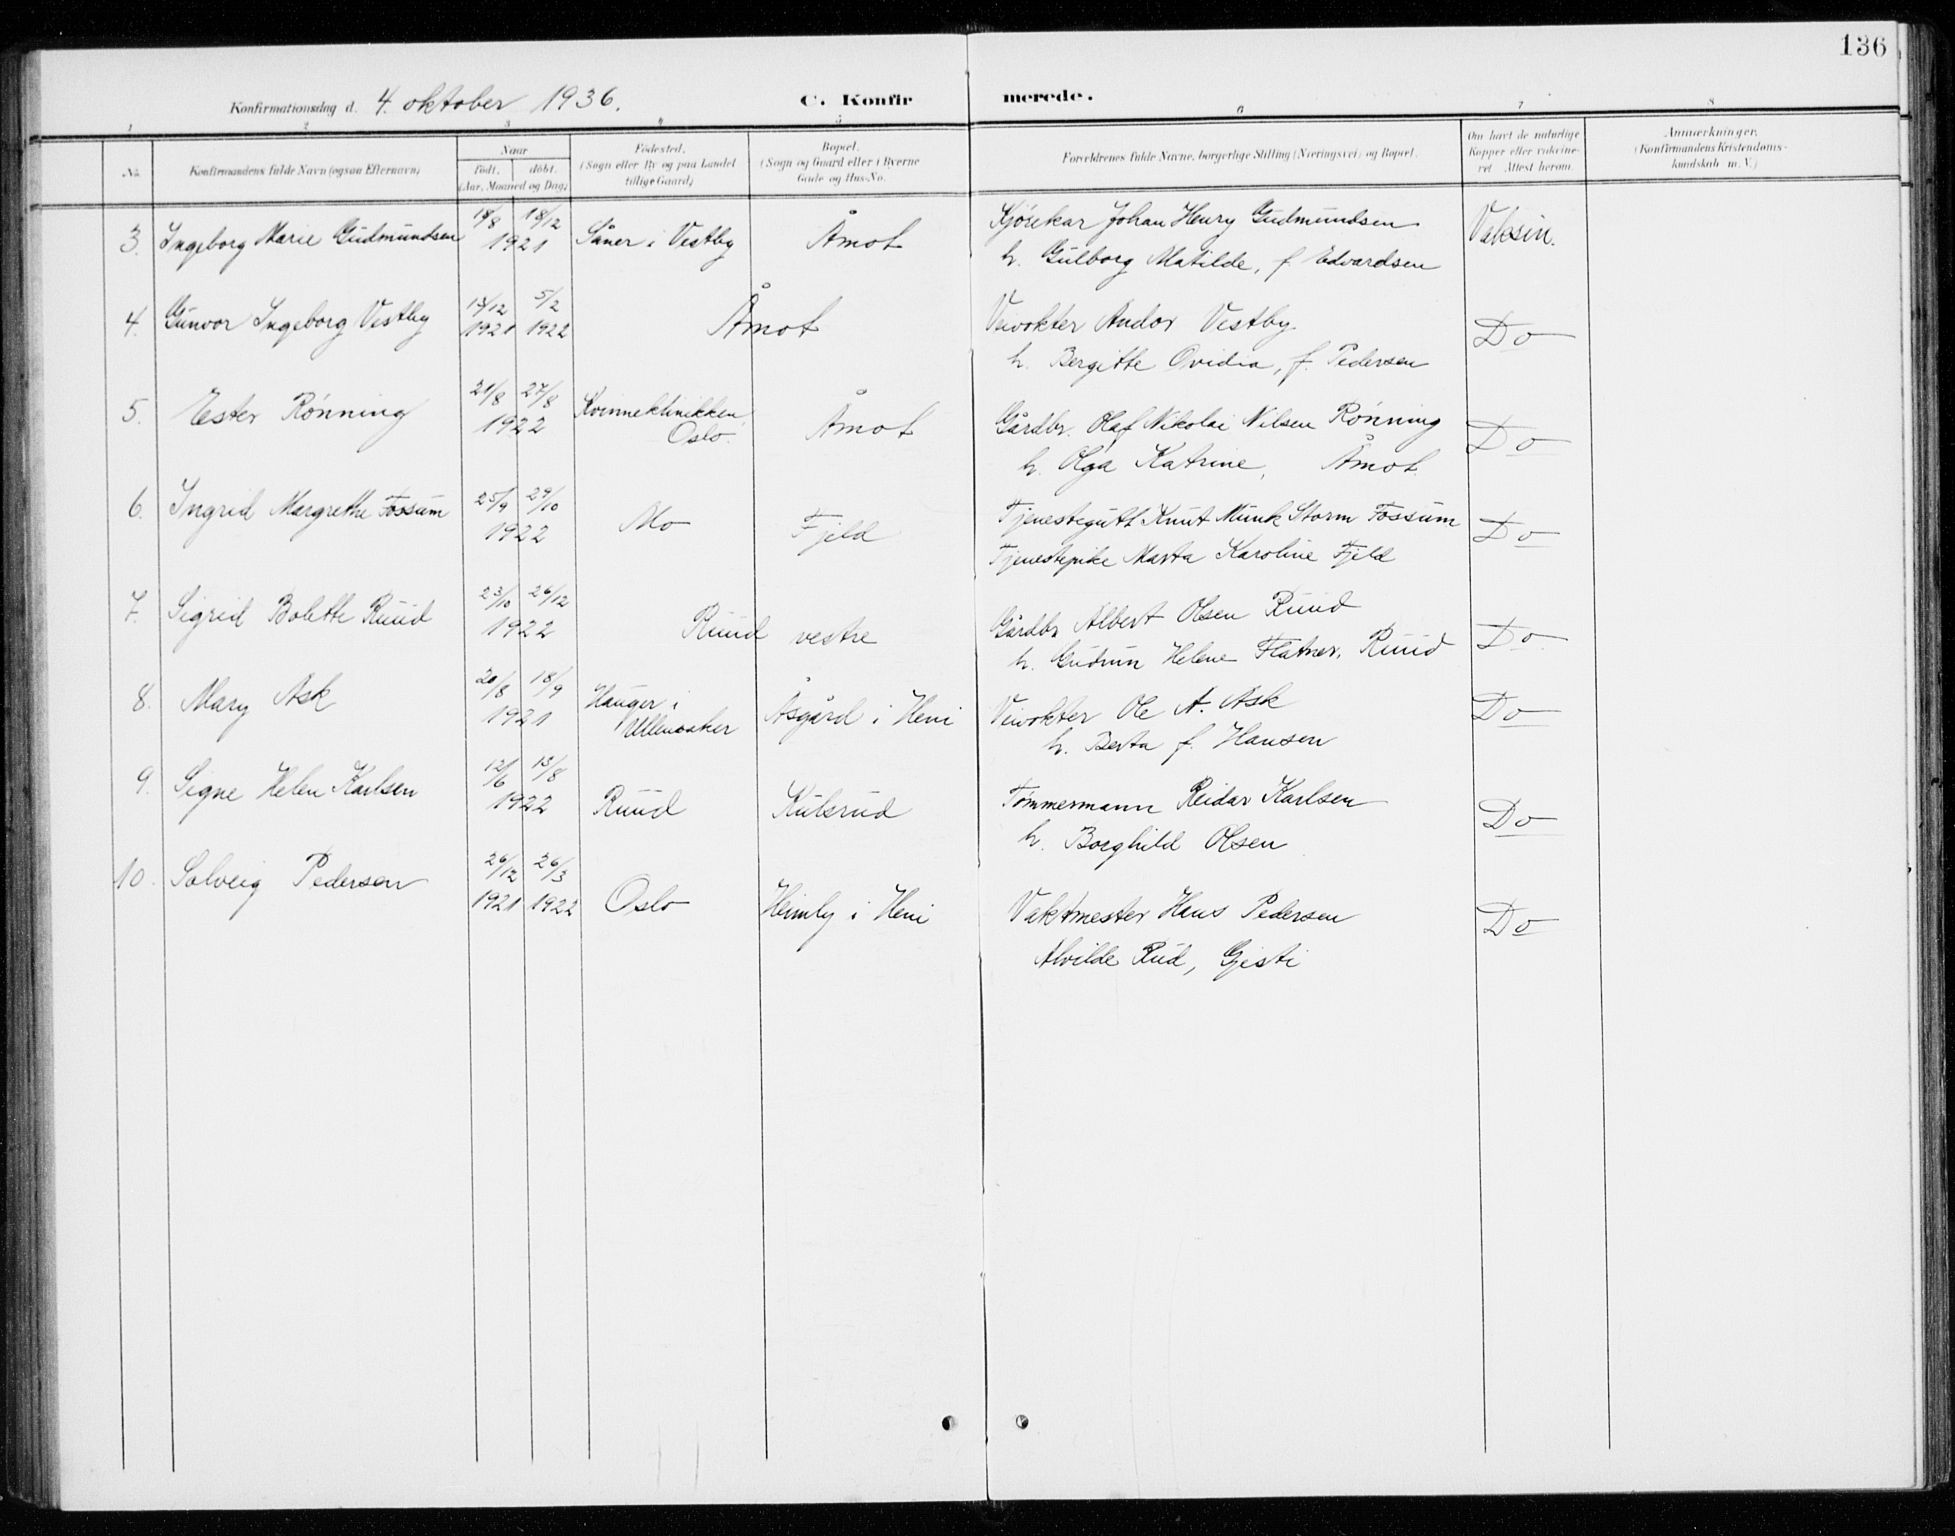 136
Konfirmationsdag d. 4. oktober 1936. C. Konfirmerede.
1 2 3 4 5 6 7 8
No. Konfirmandens fulde Navn (ogsaa Efternavn) Naar født. døbt. (Aar, Maaned og Dag) Fødested. (Sogn eller By og paa Landet tillige Gaard) Bopæl. (Sogn og Gaard eller i Byerne Gade og Hus-No. Forældrenes fulde Navne, borgerlige Stilling (Næringsvei) og Bopæl. Om havt de naturlige Kopper eller vakcineret. Attest herom. Anmærkninger. (Konfirmandens Kristendomskundskab m. V.)
3. Ingeborg Marie Gudmundsen 18/12 1921 Såner i Vestby Åmot Kjørekar Johan Henry Gudmundsen Vaksin.
h. Gulborg Matilde, f. Edvardsen
4. Gunvor Ingeborg Vestby 5/2 1921 1922 Åmot Veivokter Andor Vestby. Do
h. Bergitte Ovidia, f. Pedersen
5. Ester Rønning 21/8 27/8 1922 Kvinneklinikken Oslo. Åmot Gårdbr. Olaf Nikolai Nilsen Rønning Do
h. Olga Katrine, Åmot.
6. Ingrid Margrethe Fossum 25/9 29/10 1922 Mo Fjeld Tjenestegutt Knut Munk Storm Fossum Do
Tjenestepike Marta Karoline Fjeld
7. Sigrid Bolette Ruud 23/10 26/12 1922 Ruud vestre Gårdbr Albert Olsen Ruud Do
h. Gudrun Helene Flatner, Ruud
8. Mary Ask 20/8 18/9 1921 Hauger i Ullensaker Åsgård i Heni Veivokter Ole A. Ask Do
h. Berta f. Hansen
9. Signe Helen Karlsen 12/6 13/8 1922 Ruud Kulsrud Tømmermann Reidar Karlsen Do
h. Borghild Olsen
10. Solveig Pedersen 26/12 26/3 1921 1922 Oslo Heimly i Heni Vaktmester Hans Pedersen Do
Alvilde Rud, Gjesti